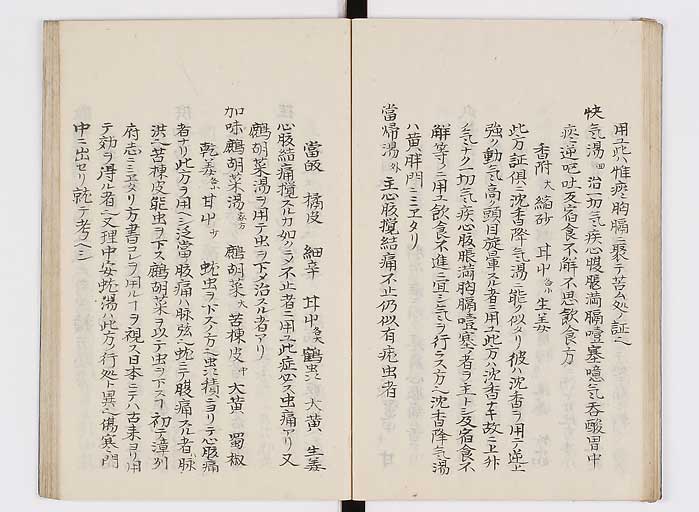 用ユ此ハ惟痰胸膈ニ聚テ苦ム処ノ証ニ
快气湯 治一切气疾心腹脹満膈噎塞噫气吞酸胃中
痰逆嘔吐及宿食不解不思飲食方
香附大 縮砂 甘中 生姜
此方証俱ニ沈香降气湯ニ能ク似タリ彼ハ沈香ヲ用テ逆上
強ク動气高ク頭目旋暈スル者ニ用ユ此方ハ沈香ナキ故ニ上升
ナク一切气疾心腹脹満胸膈噎塞ノ者ヲ主トシ及宿食不
解等ニ用ユ飲食不進ニ宜シ气ヲ行ラス方ハ沈香降气湯
ハ黄胖門ニミヱタリ
當帰湯外 主心腹攪結痛不止仍似有蚘虫者
當皈 橘皮 細辛 甘中 鶴虫 大黄 生姜
心腹結痛攪スル力如クニシテ不止者ニ用ユ此症必ス虫痛アリ又
鷓胡菜湯ヲ用テ虫ヲ下タ治スル者アリ
加味鷓胡菜湯家方 鷓胡菜大 苦棟皮中 大黄 蜀椒
乾姜 甘中少 蚘虫ヲ下ス方也虫積ニヨリテ心腹痛
者ハ此方ヲ用ヘシ泛當ノ腹痛ハ脉弦也蚘ニテ腹痛スル者ハ脉
洪也苦棟皮能虫ヲ下ス鷓胡菜ヲ以テ虫ヲ下スヿ初テ漳州
府志ニミヱタリ方書コレヲ用ルヿヲ視ス日本ニテハ古来ヨリ用
テ効ヲ得ル者也又理中安蚘湯ハ此方ノ行処ト異也傷寒ノ門
中ニ出セリ就テ考ヘシ